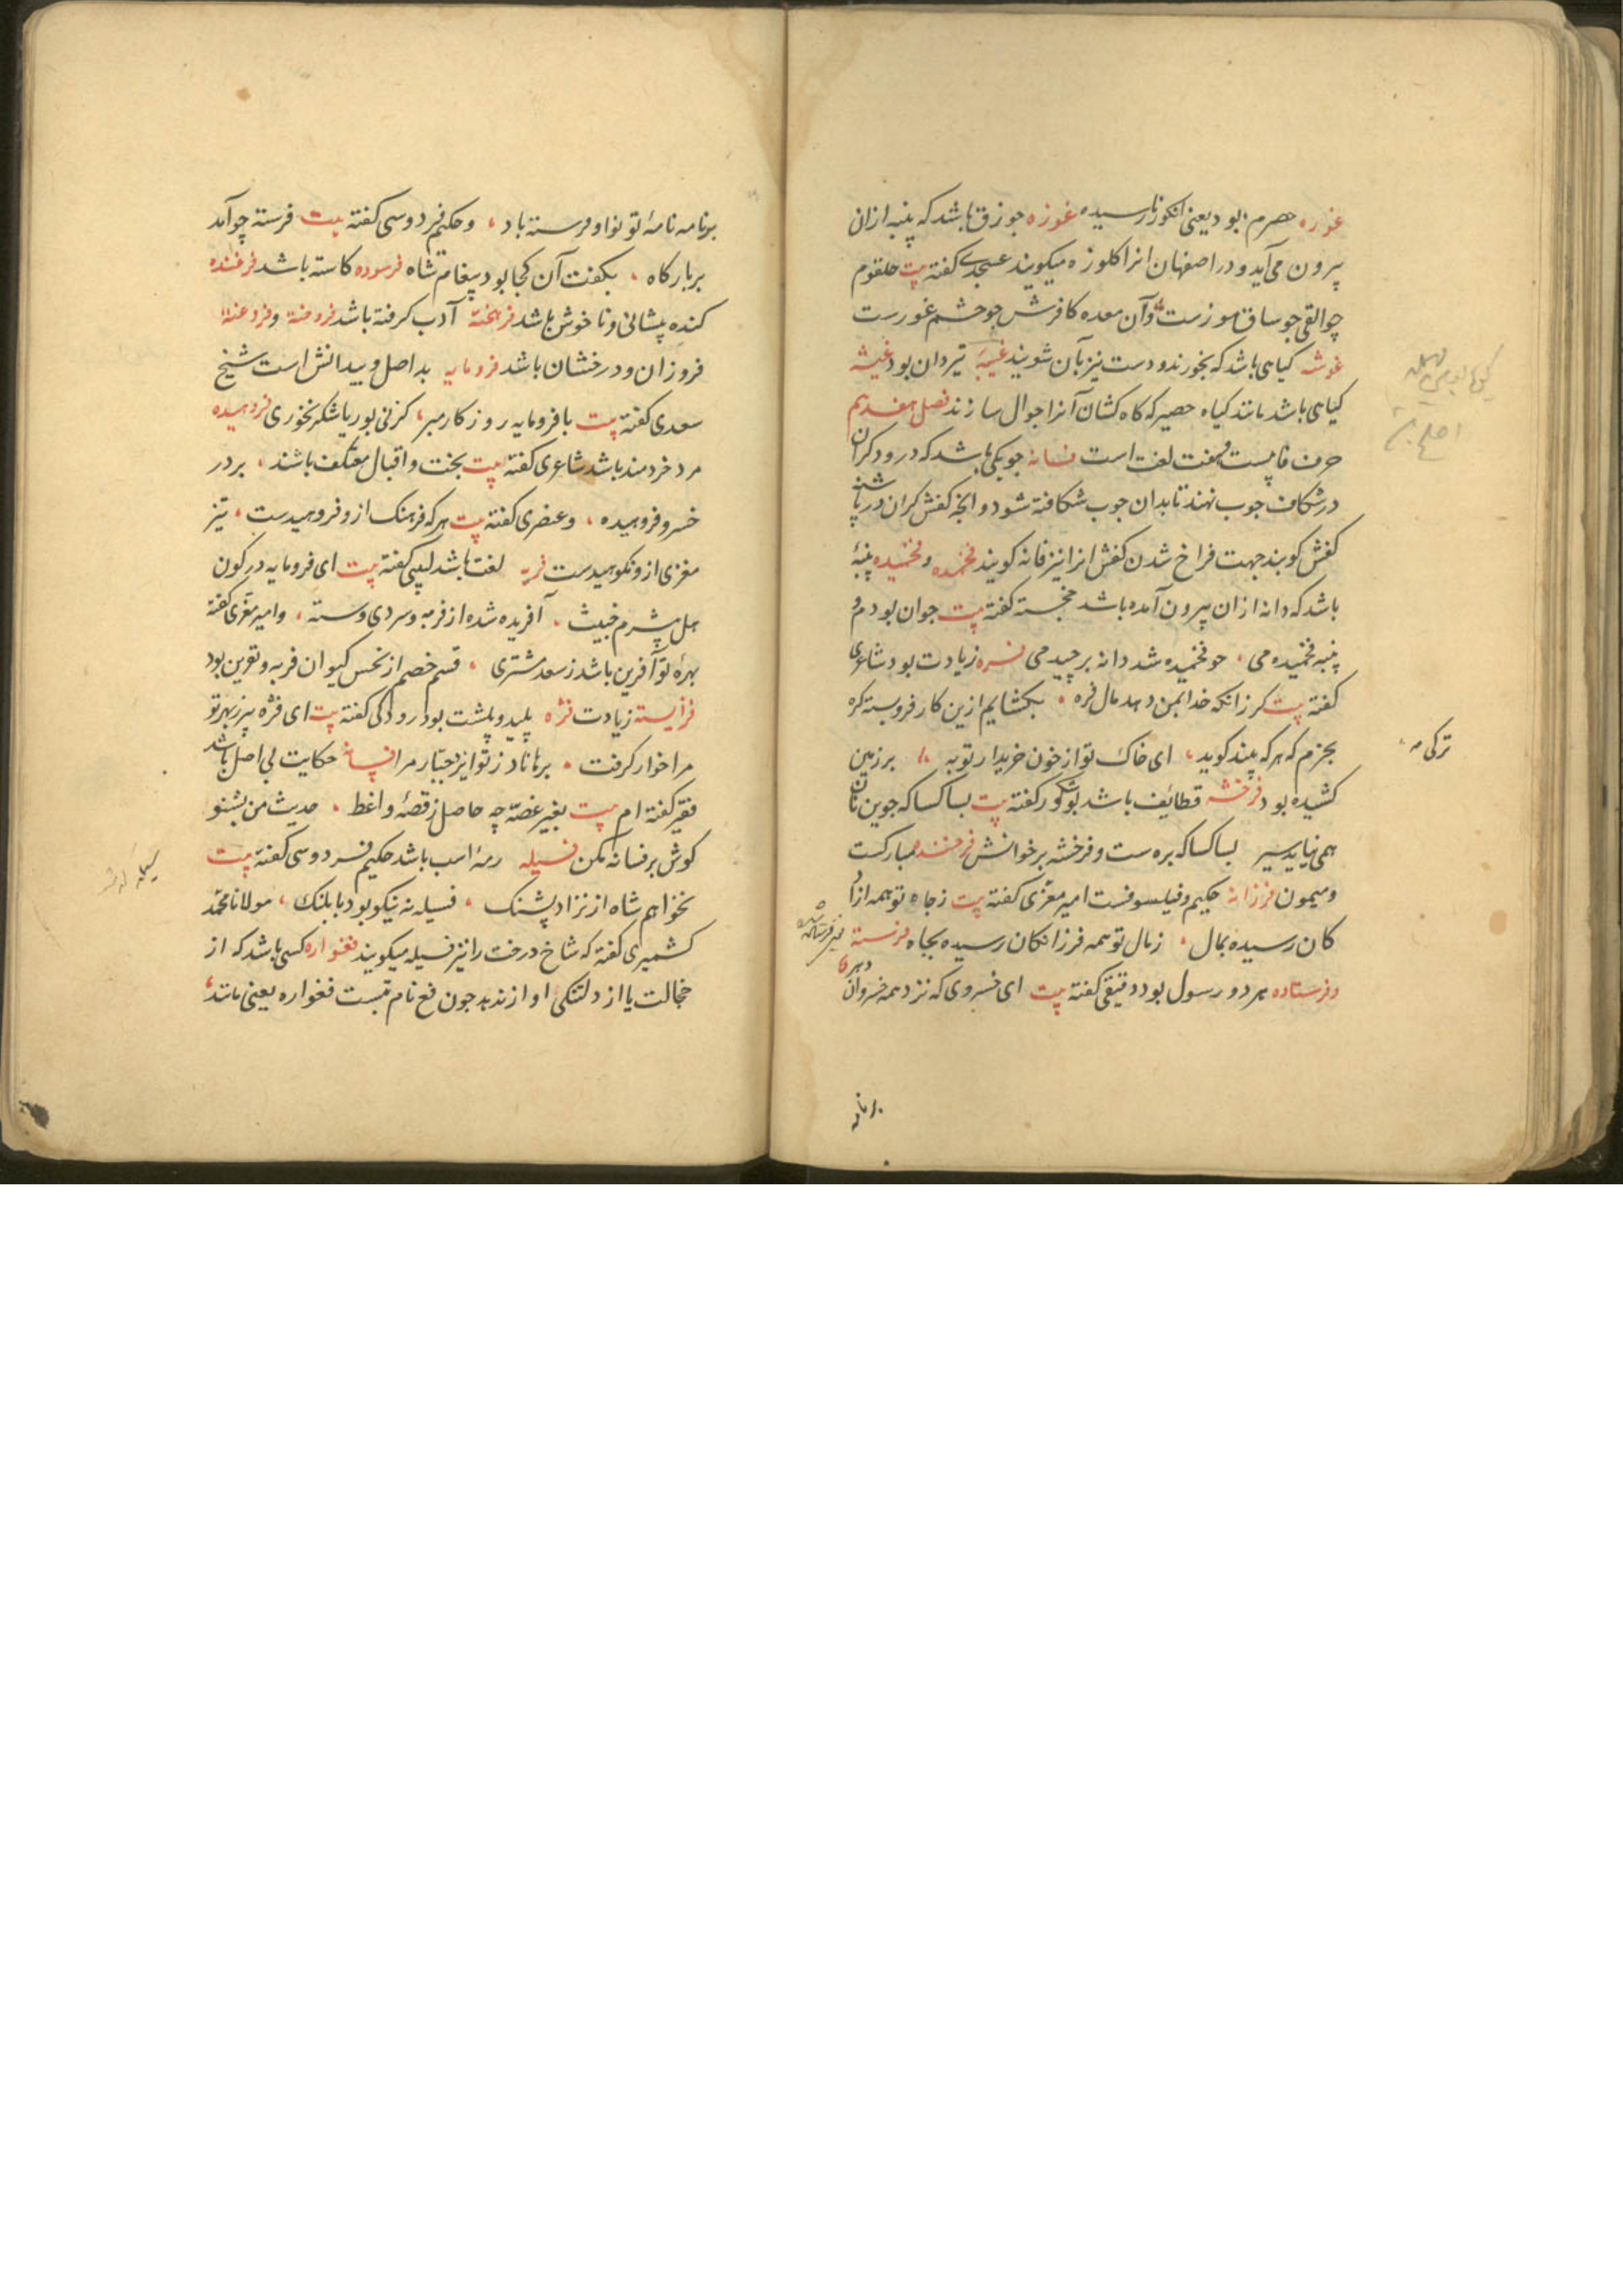 غوره حصرم بود یعنی انکور نارسیده غوزه جوزق باشد که پنبه ازان
بیرون می‌آید و در اصفهان انرا کلوزه میکویند عسجدی کفته بیت حلقوم
جوالقی جو ساق موزست وآن معده کافرش جو خشم غورست
غوشه کیاهی باشد که بخورند و دست نیز بآن شویند غیبه تیردان بود غیشه
کیاهی باشد مانند کیاه حصیر که کاه کشان آنرا جوال سازند فصل هفدهم
حرف فا بیست و هفت لغت است فسانه جوبکی باشد که درودکران
در شکاف جوب نهند تا بدان جوب شکافته شود و انچه کفش کران در پاشنه
کفش کوبند جهت فراخ شدن کفش انرا نیز فانه کویند فخمده و فخمیده پنبهٔ
باشد که دانه ازان بیرون آمده باشد خجسته کفته بیت جوان بودم و
پنبه فخمیده می جو فخمیده شد دانه برچیدمی فره زیادت بود شاعری
کفته بیت کر زانکه خدا بمن دهد مال فره بکشایم ازین کار فروبسته کره
بجزم که هرکه پند کوید ای خاک تو از خون خریدار تو به برزمین
کشیده بود فرخشه قطائف باشد بوشکور کفته بیت بسا کسا که جوین نان
همی نیابد سیر بسا کسا که بره ست و فرخشه برخوانش فرخنده مبارکست
و میمون فرزانه حکیم و فیلسوفست امیر معزی کفته بیت ز جاه تو همه ازاد
کان رسیده بمال ز مال تو همه فرزانکان رسیده بجاه فرسته
و فرستاده هر دو رسول بود دقیقی کفته بیت ای خسروی که نزد همه خسروان دهر
ترکی
برنامه
برنامه نامهٔ تو نوا و فرسته باد وحکیم فردوسی کفته بیت فرسته چو آمد
بر بارکاه بکفت آن کجا بود پیغام شاه فرسوده کاسته باشد فرغنده
کنده پیشانی و ناخوش باشد فرهخته آدب کرفته باشد
فروزان و درخشان باشد فرومایه بد اصل و بیدانش است شیخ
سعدی کفته بیت با فرومایه روزکار مبر کز نی بوریا شکر نخوری فروهیده
مرد خردمند باشد شاعری کفته بیت بخت و اقبال معتکف باشند بر در
خسرو فروهیده وعنصری کفته بیت هرکه فرهنک ازو فروهیدست تیز
مغزی ازو نکوهیدست فریه لغت باشد لبیبی کفته بیت ای فرومایه در کون
هل بشرم خبیث آفریده شده از فریه و سردی و سته وامیر معزی کفته
بهرهٔ تو آفرین باشد ز سعد مشتری قسم خصم از نحس کیوان فریه و نفرین بود
فزایسته زیادت فژه پلید و پلشت بود رودکی کفته بیت ای فژه پیر ز بهر تو
مرا خوار کرفت برهاناد ز تو ایزد جبار مرا فسانه حکایت بی اصل باشد
فقیر کفته ام بیت بغیر غصه چه حاصل ز قصهٔ واعظ حدیث من بشنو
کوش بر فسانه مکن فسیله رمهٔ اسب باشد حکیم فردوسی کفته بیت
نخواهم شاه از نژاد پشنک فسیله نه نیکو بود با پلنک مولانا محمد
کشمیری کفته که شاخ درخت را نیز فسیله میکویند فغواره کسی باشد که از
خجالت یا از دلتنکی او از ندهد جون فغ نام بتست فغواره یعنی مانند